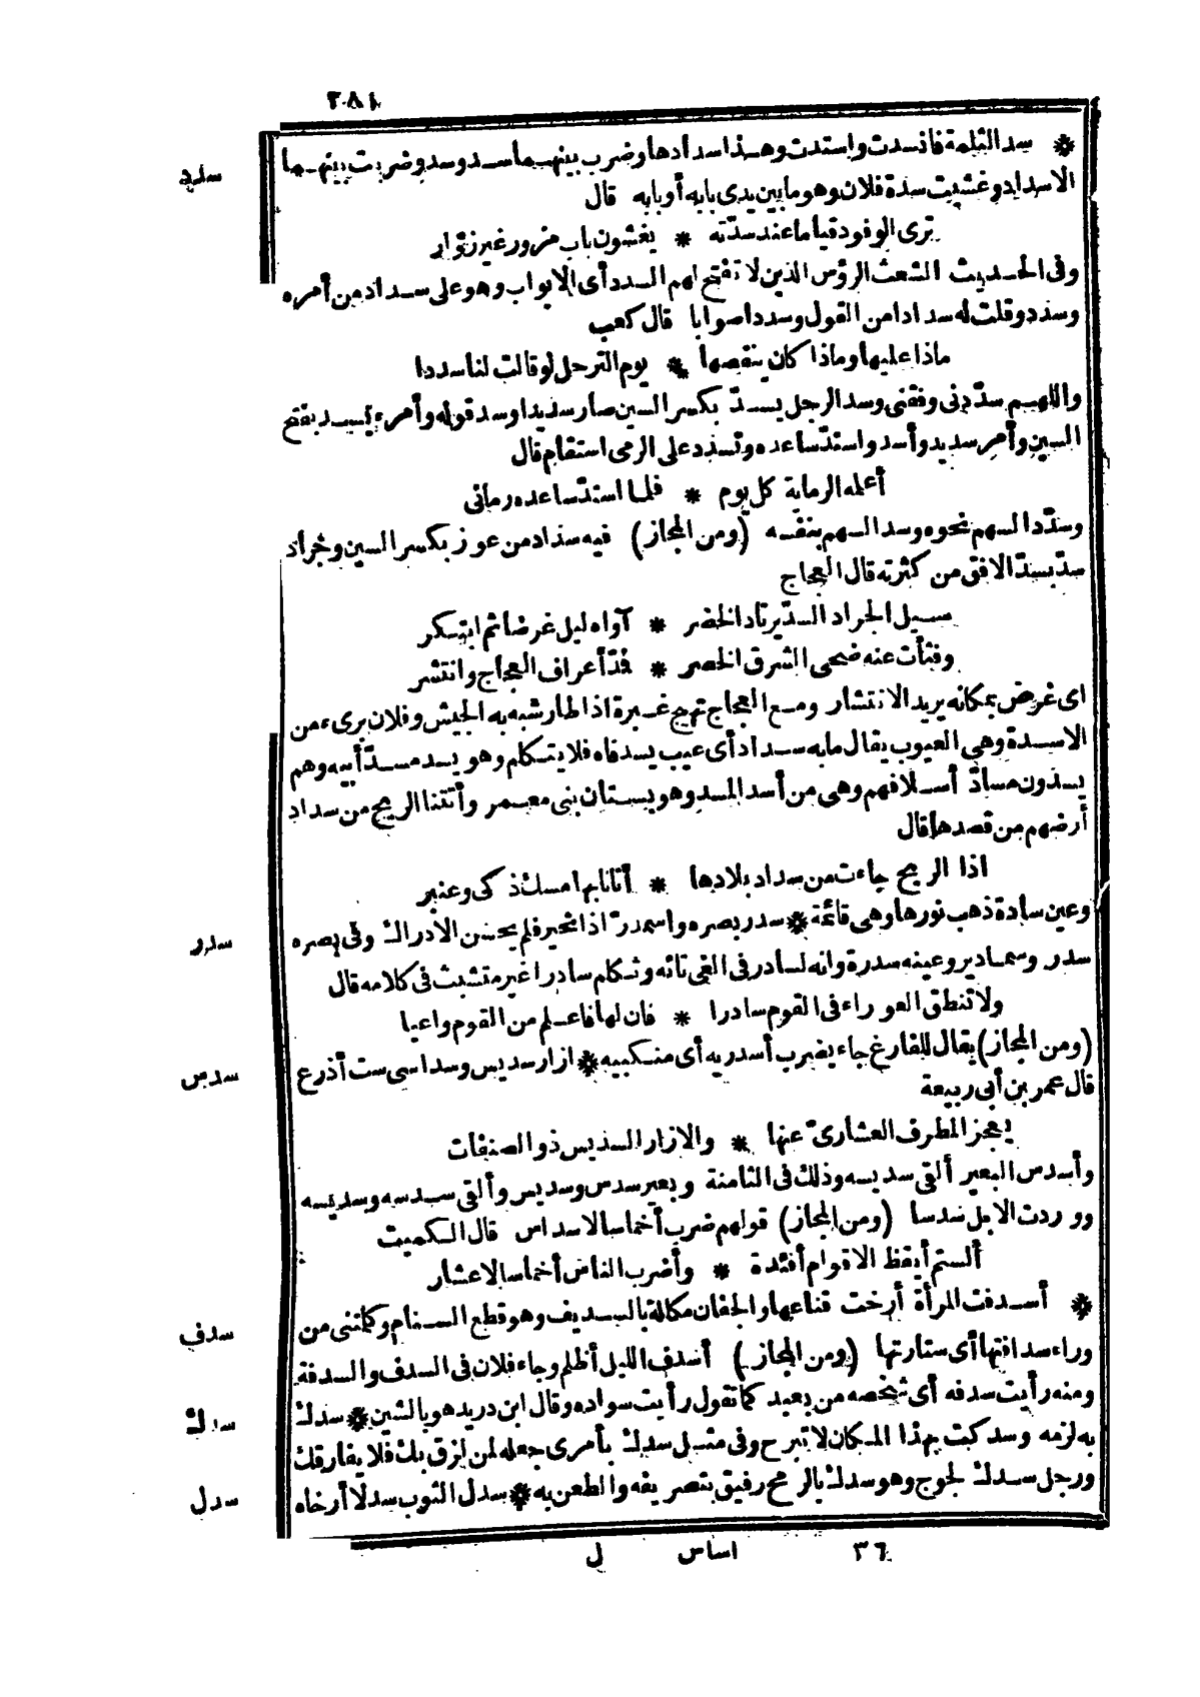 ٢٨١
* سد الثلمة فانسدت واستدت وهذا سدادها وضرب بينهما سد وسد وضربت بينهما
سدد
الاسداد وغشيت سدة فلان وهو ما بين يدى بابه أو بابه قال
ترى الوفود قياما عند سدّته * يغشون باب مزور غير زوّار
وفى الحديث الشعث الرؤس الذين لا تفتح لهم السدد أى الابواب وهو على سداد من أمره
وسدد وقلت له سدادا من القول وسددا صوابا قال كعب
ماذا عليها وماذا كان ينقصها * يوم الترحل لو قالت لنا سددا
واللهم سدّدنى وفقنى وسد الرجل يسدّ بكسر السين صار سديدا وسد قوله وأمره يسد بفتح
السين وأمر سديد وأسد واستدّ ساعده وتسدد على الرمى استقام قال
أعلمه الرماية كل يوم * فلما استدّ ساعده رمانى
وسدّد السهم نحوه وسد السهم بنفسه (ومن المجاز) فيه سداد من عوز بكسر السين وجراد
سدّ يسدّ الافق من كثرته قال العجاج
سيل الجراد السدّ يرتاد الخضر * آواه ليل غرضا ثم ابتكر
وفثأت عنه ضحى الشرق الخصر * فدّ أعراف العجاج وانتشر
اى غرض بمكانه يريد الانتشار ومع العجاج تهيج غبرة اذا طار شبه به الجيش وفلان برىء من
الاسدة وهى العيوب يقال ما به سداد أى عيب يسد فاه فلا يتكلم وهو يسد مسدّ أبيه وهم
يسدّون مسادّ أسلافهم وهى من أسد المسد وهو بستان بنى معمر وأتتنا الريح من سداد
أرضهم من قصدها قال
اذا الريح جاءت من سداد بلادها * أتانا بها مسك ذكى وعنبر
وعين سادة ذهب نورها وهى قائمة * سدر بصره واسمدرّ اذا تحير فلم يحسن الادراك وفى بصره
سدر
سدر وسمادير وعينه سدرة وانه لسادر فى الغى تائه وتكلم سادرا غير متثبت فى كلامه قال
ولا تنطق العوراء فى القوم سادرا * فان لها فاعلم من القوم واعيا
(ومن المجاز) يقال للفارغ جاء يضرب أسدريه أى منكبيه * ازار سديس وسداسى ست أذرع
سدس
قال عمر بن أبى ربيعة
يعجز المطرف العشارىّ عنها * والازار السديس ذو الصنفات
وأسدس البعير ألقى سديسه وذلك فى الثامنة وبعير سدس وسديس وألقى سدسه وسديسه
ووردت الابل سدسا (ومن المجاز) قولهم ضرب أخماسا لاسداس قال الكميت
ألستم أيقظ الاقوام أفئدة * وأضرب الناس أخماسا لاعشار
* أسدفت المرأة أرخت قناعها والجفان مكللة بالسديف وهو قطع السنام وكلمتنى من
سدف
وراء سدافتها أى ستارتها (ومن المجاز) أسدف الليل أظلم وجاء فلان فى السدف والسدفة
ومنه رأيت سدفه أى شخصه من بعيد كما تقول رأيت سواده وقال ابن دريد هو بالشين * سدك
سدك
به لزمه وسدكت بهذا المكان لا تبرح وفى مثل سدك بأمرى جعله لمن لزق بك فلا يفارقك
ورجل سدك لجوج وهو سدك بالرمح رفيق بتصريفه والطعن به * سدل الثوب سدلا أرخاه
سدل
٣٦ اساس ل